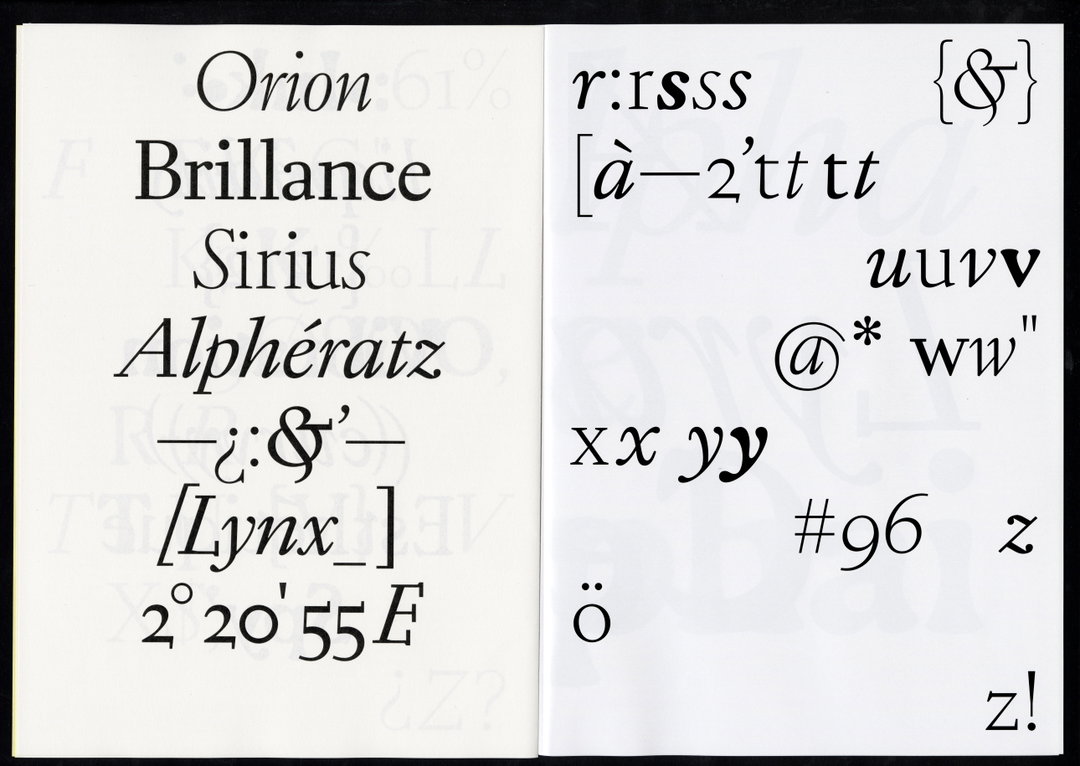 Orion
Brillance
Sirius
Alphératz
—¿:&’—
[Lynx_]
2°20'55E
r:rssss {&}
[à—2’tt tt
uuvv
@* ww"
xx yy
#96 z
ö
z!